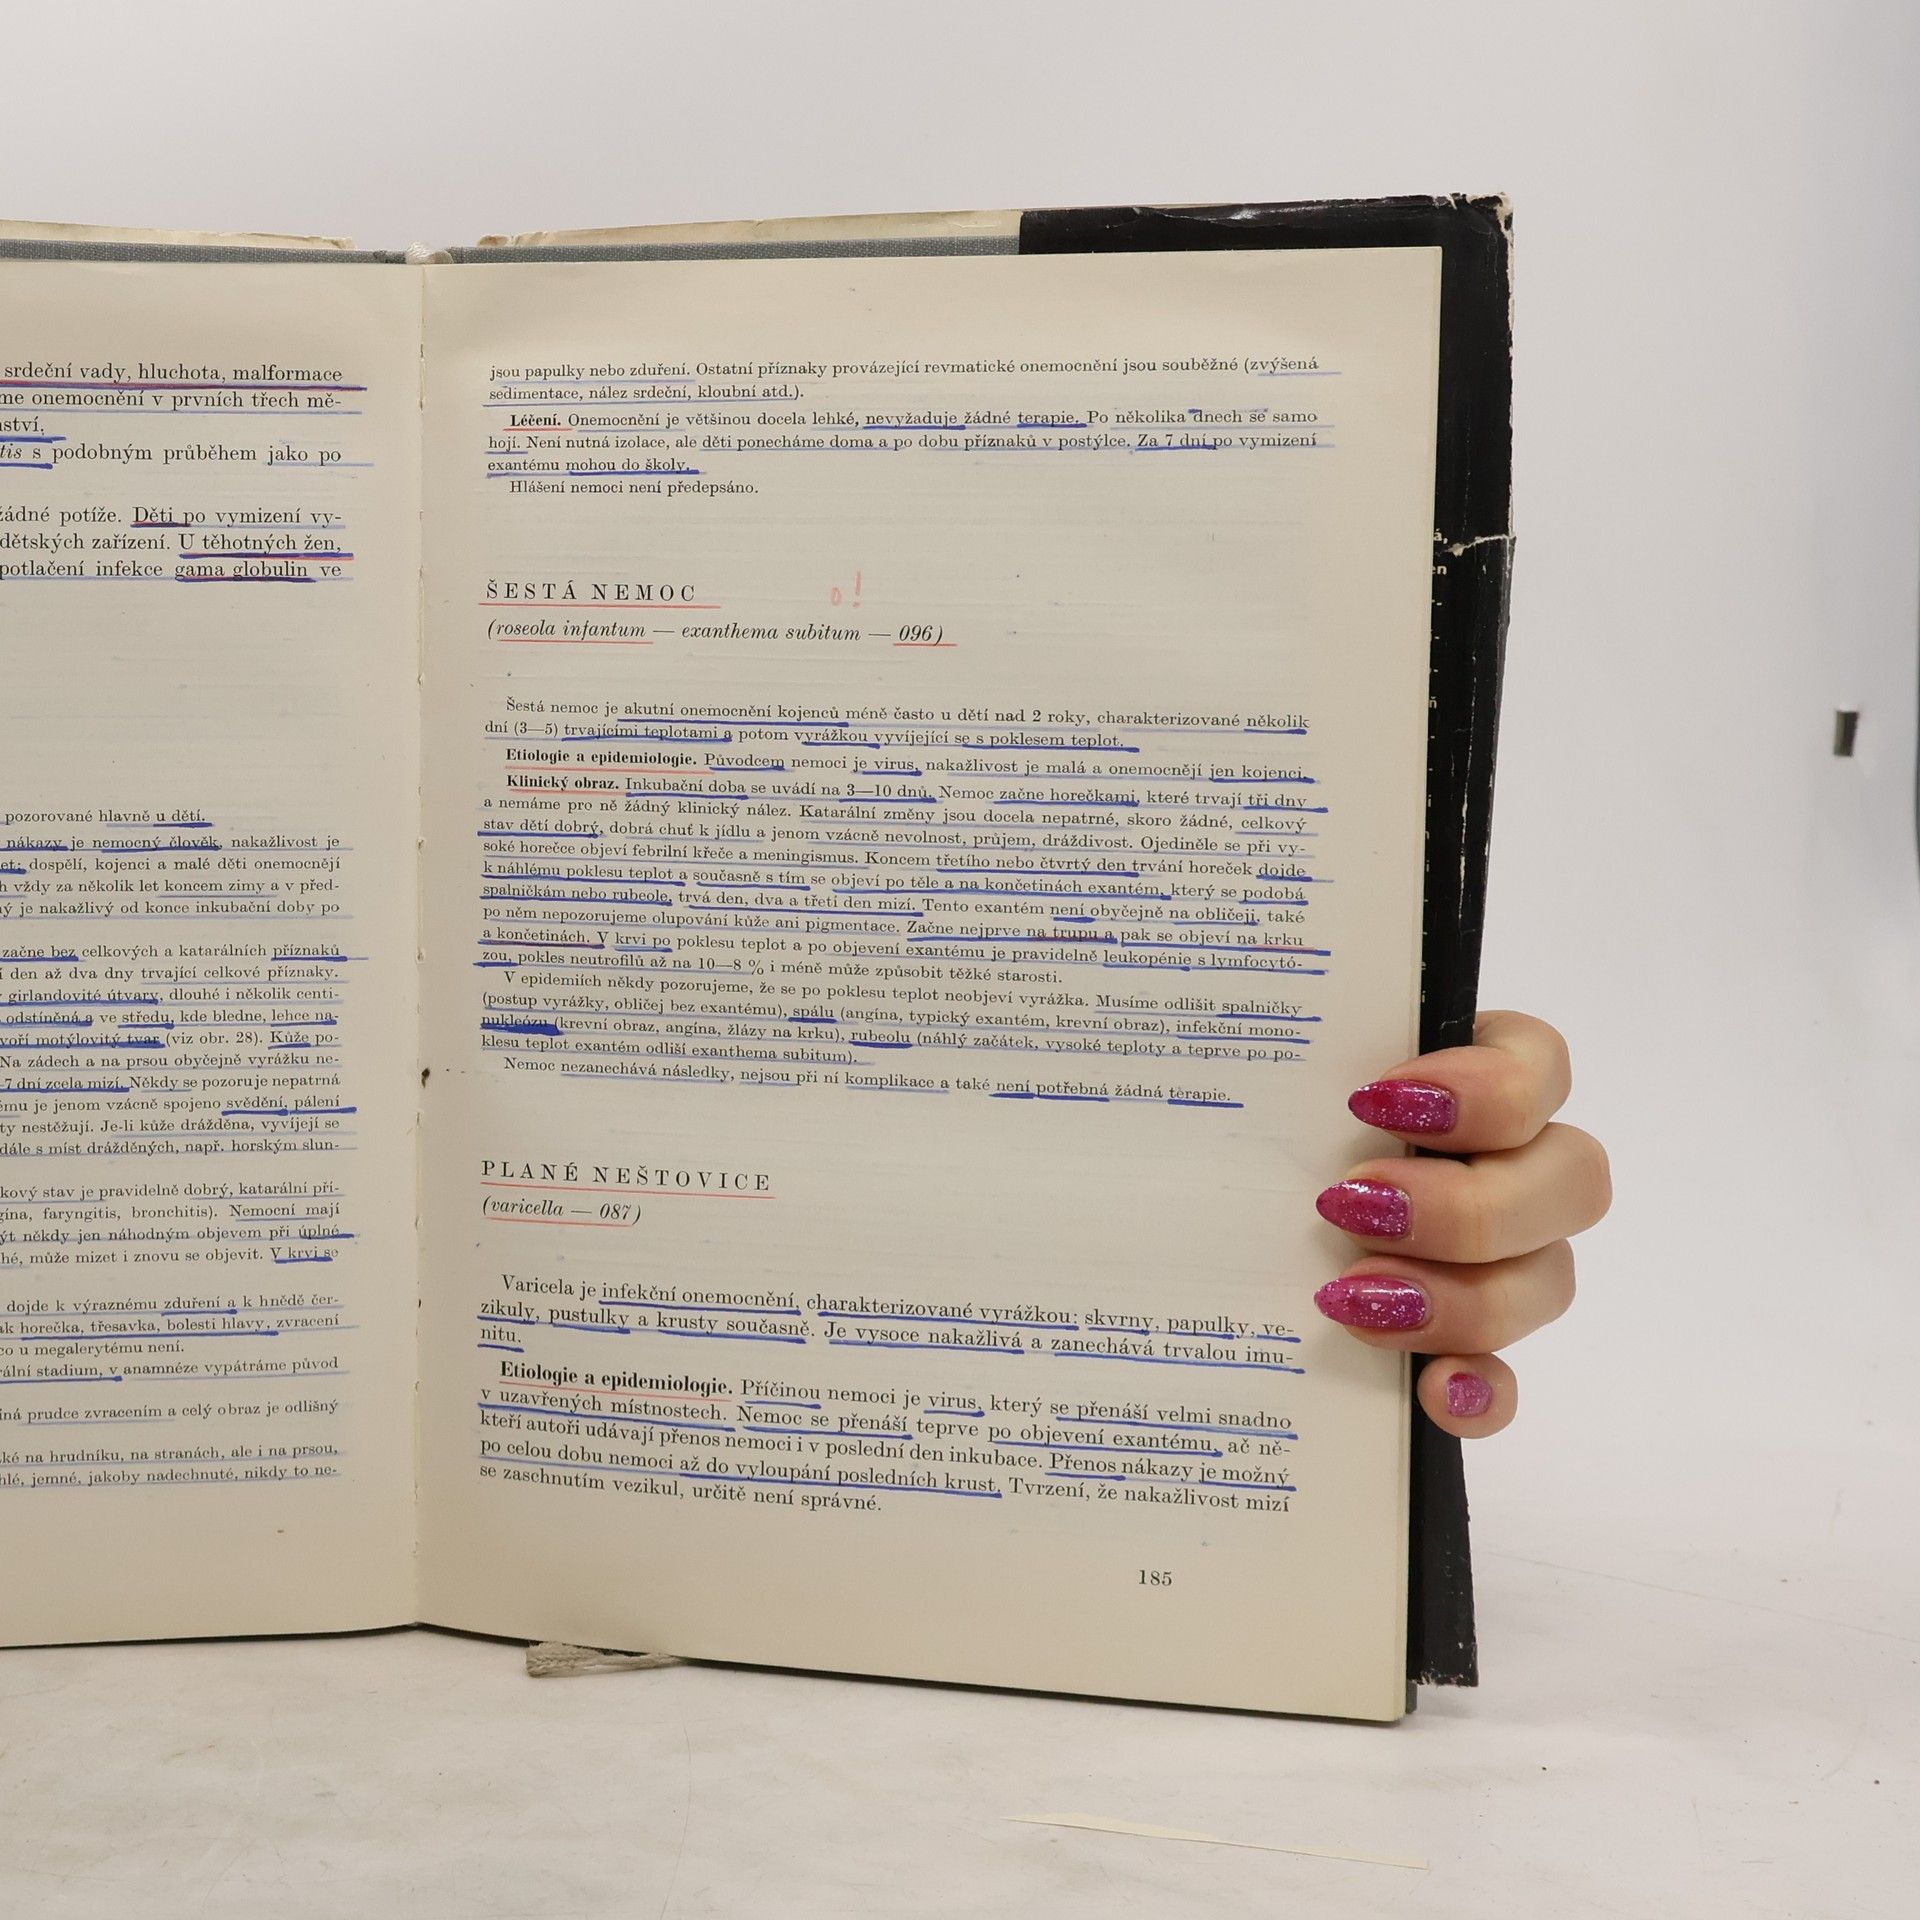 srdeční vady, hluchota, malformace
me onemocnění v prvních třech mě-
ství.
tis s podobným průběhem jako po
žádné potíže. Děti po vymizení vy-
dětských zařízení. U těhotných žen,
potlačení infekce gama globulin ve
pozorované hlavně u dětí.
nákazy je nemocný člověk, nakažlivost je
let; dospělí, kojenci a malé děti onemocnějí
h vždy za několik let koncem zimy a v před-
ný je nakažlivý od konce inkubační doby po
začne bez celkových a katarálních příznaků
í den až dva dny trvající celkové příznaky.
girlandovité útvary, dlouhé i několik centi-
odstíněná a ve středu, kde bledne, lehce na-
voří motýlovitý tvar (viz obr. 28). Kůže po-
Na zádech a na prsou obyčejně vyrážku ne-
7 dní zcela mizí. Někdy se pozoruje nepatrná
ému je jenom vzácně spojeno svědění, pálení
ty nestěžují. Je-li kůže drážděna, vyvíjejí se
dále s míst drážděných, např. horským slun-
kový stav je pravidelně dobrý, katarální pří-
gína, faryngitis, bronchitis). Nemocní mají
ýt někdy jen náhodným objevem při úplné
hé, může mizet i znovu se objevit. V krvi se
dojde k výraznému zduření a k hnědě čer-
ak horečka, třesavka, bolesti hlavy, zvracení
co u megalerytému není.
rální stadium, v anamnéze vypátráme původ
íná prudce zvracením a celý obraz je odlišný
ké na hrudníku, na stranách, ale i na prsou,
hlé, jemné, jakoby nadechnuté, nikdy to ne-
jsou papulky nebo zduření. Ostatní příznaky provázející revmatické onemocnění jsou souběžné (zvýšená
sedimentace, nález srdeční, kloubní atd.).
Léčení. Onemocnění je většinou docela lehké, nevyžaduje žádné terapie. Po několika dnech se samo
hojí. Není nutná izolace, ale děti ponecháme doma a po dobu příznaků v postýlce. Za 7 dní po vymizení
exantému mohou do školy.
Hlášení nemoci není předepsáno.
ŠESTÁ NEMOC o!
(roseola infantum — exanthema subitum — 096)
Šestá nemoc je akutní onemocnění kojenců méně často u dětí nad 2 roky, charakterizované několik
dní (3—5) trvajícími teplotami a potom vyrážkou vyvíjející se s poklesem teplot.
Etiologie a epidemiologie. Původcem nemoci je virus, nakažlivost je malá a onemocnějí jen kojenci.
Klinický obraz. Inkubační doba se uvádí na 3—10 dnů. Nemoc začne horečkami, které trvají tři dny
a nemáme pro ně žádný klinický nález. Katarální změny jsou docela nepatrné, skoro žádné, celkový
stav dětí dobrý, dobrá chuť k jídlu a jenom vzácně nevolnost, průjem, dráždivost. Ojediněle se při vy-
soké horečce objeví febrilní křeče a meningismus. Koncem třetího nebo čtvrtý den trvání horeček dojde
k náhlému poklesu teplot a současně s tím se objeví po těle a na končetinách exantém, který se podobá
spalničkám nebo rubeole, trvá den, dva a třetí den mizí. Tento exantém není obyčejně na obličeji, také
po něm nepozorujeme olupování kůže ani pigmentace. Začne nejprve na trupu a pak se objeví na krku
a končetinách. V krvi po poklesu teplot a po objevení exantému je pravidelně leukopénie s lymfocytó-
zou, pokles neutrofilů až na 10—8 % i méně může způsobit těžké starosti.
V epidemiích někdy pozorujeme, že se po poklesu teplot neobjeví vyrážka. Musíme odlišit spalničky
(postup vyrážky, obličej bez exantému), spálu (angína, typický exantém, krevní obraz), infekční mono-
nukleózu (krevní obraz, angína, žlázy na krku), rubeolu (náhlý začátek, vysoké teploty a teprve po po-
klesu teplot exantém odliší exanthema subitum).
Nemoc nezanechává následky, nejsou při ní komplikace a také není potřebná žádná terapie.
PLANÉ NEŠTOVICE
(varicella — 087)
Varicela je infekční onemocnění, charakterizované vyrážkou: skvrny, papulky, ve-
zikuly, pustulky a krusty současně. Je vysoce nakažlivá a zanechává trvalou imu-
nitu.
Etiologie a epidemiologie. Příčinou nemoci je virus, který se přenáší velmi snadno
v uzavřených místnostech. Nemoc se přenáší teprve po objevení exantému, ač ně-
kteří autoři udávají přenos nemoci i v poslední den inkubace. Přenos nákazy je možný
po celou dobu nemoci až do vyloupání posledních krust. Tvrzení, že nakažlivost mizí
se zaschnutím vezikul, určitě není správné.
185